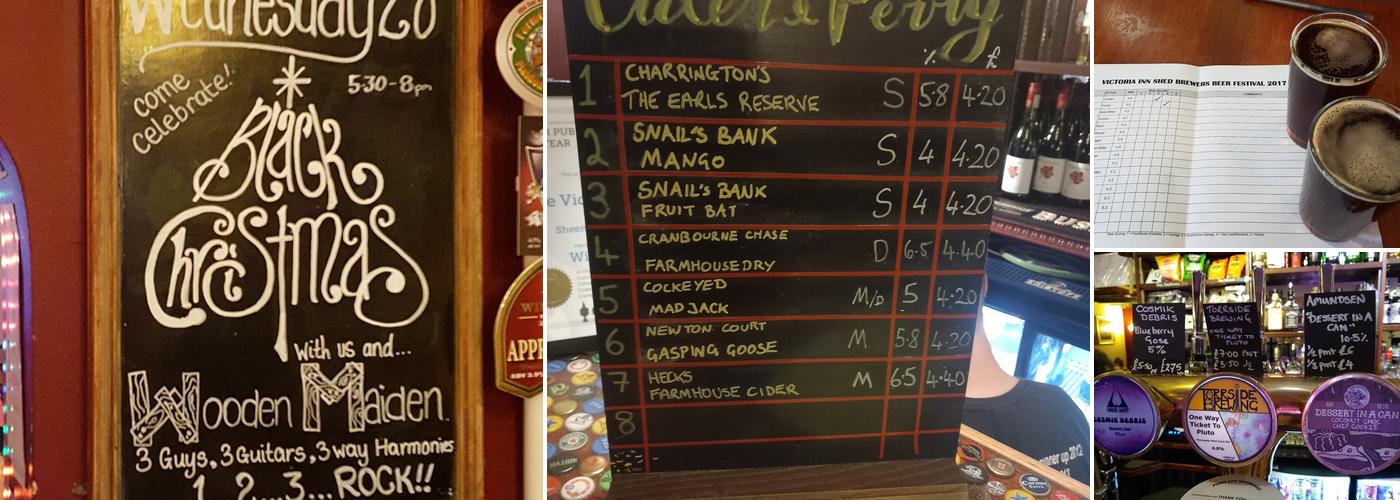 Wednesday 20
come
celebrate!
5·30-8pm
Black
Christmas
With us and...
Wooden Maiden
3 Guys, 3 Guitars, 3 way Harmonies
1...2...3... ROCK!!
APP
Cider & Perry
% £
1 CHARRINGTON'S
THE EARLS RESERVE S 5·8 4·20
2 SNAIL'S BANK
MANGO S 4 4·20
3 SNAIL'S BANK
FRUIT BAT S 4 4·20
4 CRANBOURNE CHASE
FARMHOUSE DRY D 6·5 4·40
5 COCKEYED
MAD JACK M/D 5· 4·20
6 NEWTON COURT
GASPING GOOSE M 5·8 4·20
7 HECKS
FARMHOUSE CIDER M 6·5 4·40
8
BUS
Corona
VICTORIA INN SHED BREWERS BEER FESTIVAL 2017
STYLE
COMMENTS
COSMIK
DEBRIS
Blueberry
Gose
5%
£5·50 £2·75
TORRSIDE
BREWING
ONE WAY
TICKET TO
PLUTO
£7·00 PNT
£3·50 ½
AMUNDSEN
"DESSERT IN A
CAN"
10·5%
½ pint £6
⅓ pint £4
COSMIK DEBRIS
TORRSIDE
BREWING
One Way
Ticket To
Pluto
6.8%
DESSERT IN A CAN
COCONUT CHOC
CHIP COOKIE